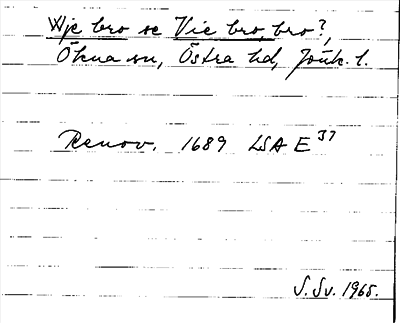 Wje bro se Vie bro, bro?,
Ökna sn, Östra hd, Jönk. l.
Renov. 1689 LSA E 37
J. Sv. 1965.